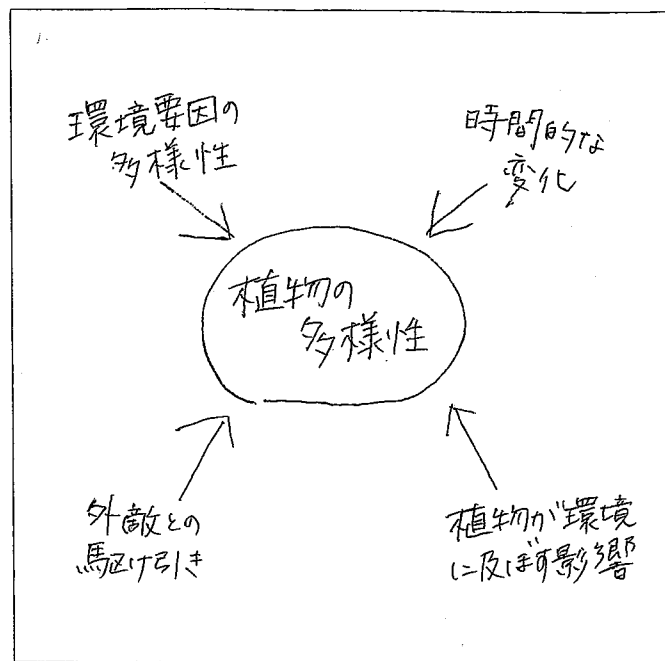 環境要因の
多様性
時間的な
変化
植物の
多様性
外敵との
駆け引き
植物が環境
に及ぼす影響